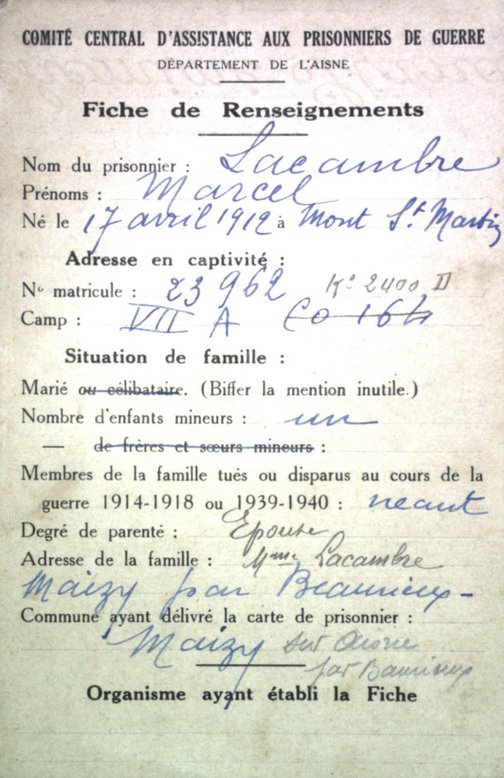 COMITÉ CENTRAL D'ASSISTANCE AUX PRISONNIERS DE GUERRE
DÉPARTEMENT DE L'AISNE
Fiche de Renseignements
Nom du prisonnier : Lacambre
Prénoms : Marcel
Né le 17 avril 1912 à Mont St Martin
Adresse en captivité :
No matricule : 23 962 Ko 2400 II
Camp : VII A Co 164
Situation de famille :
Marié ou célibataire. (Biffer la mention inutile.)
Nombre d'enfants mineurs : un
— de frères et sœurs mineurs :
Membres de la famille tués ou disparus au cours de la
guerre 1914-1918 ou 1939-1940 : neant
Degré de parenté : Epouse
Adresse de la famille : Mme Lacambre
Maizy par Beaurieux -
Commune ayant délivré la carte de prisonnier :
Maizy sur Aisne
par Beaurieux
Organisme ayant établi la Fiche